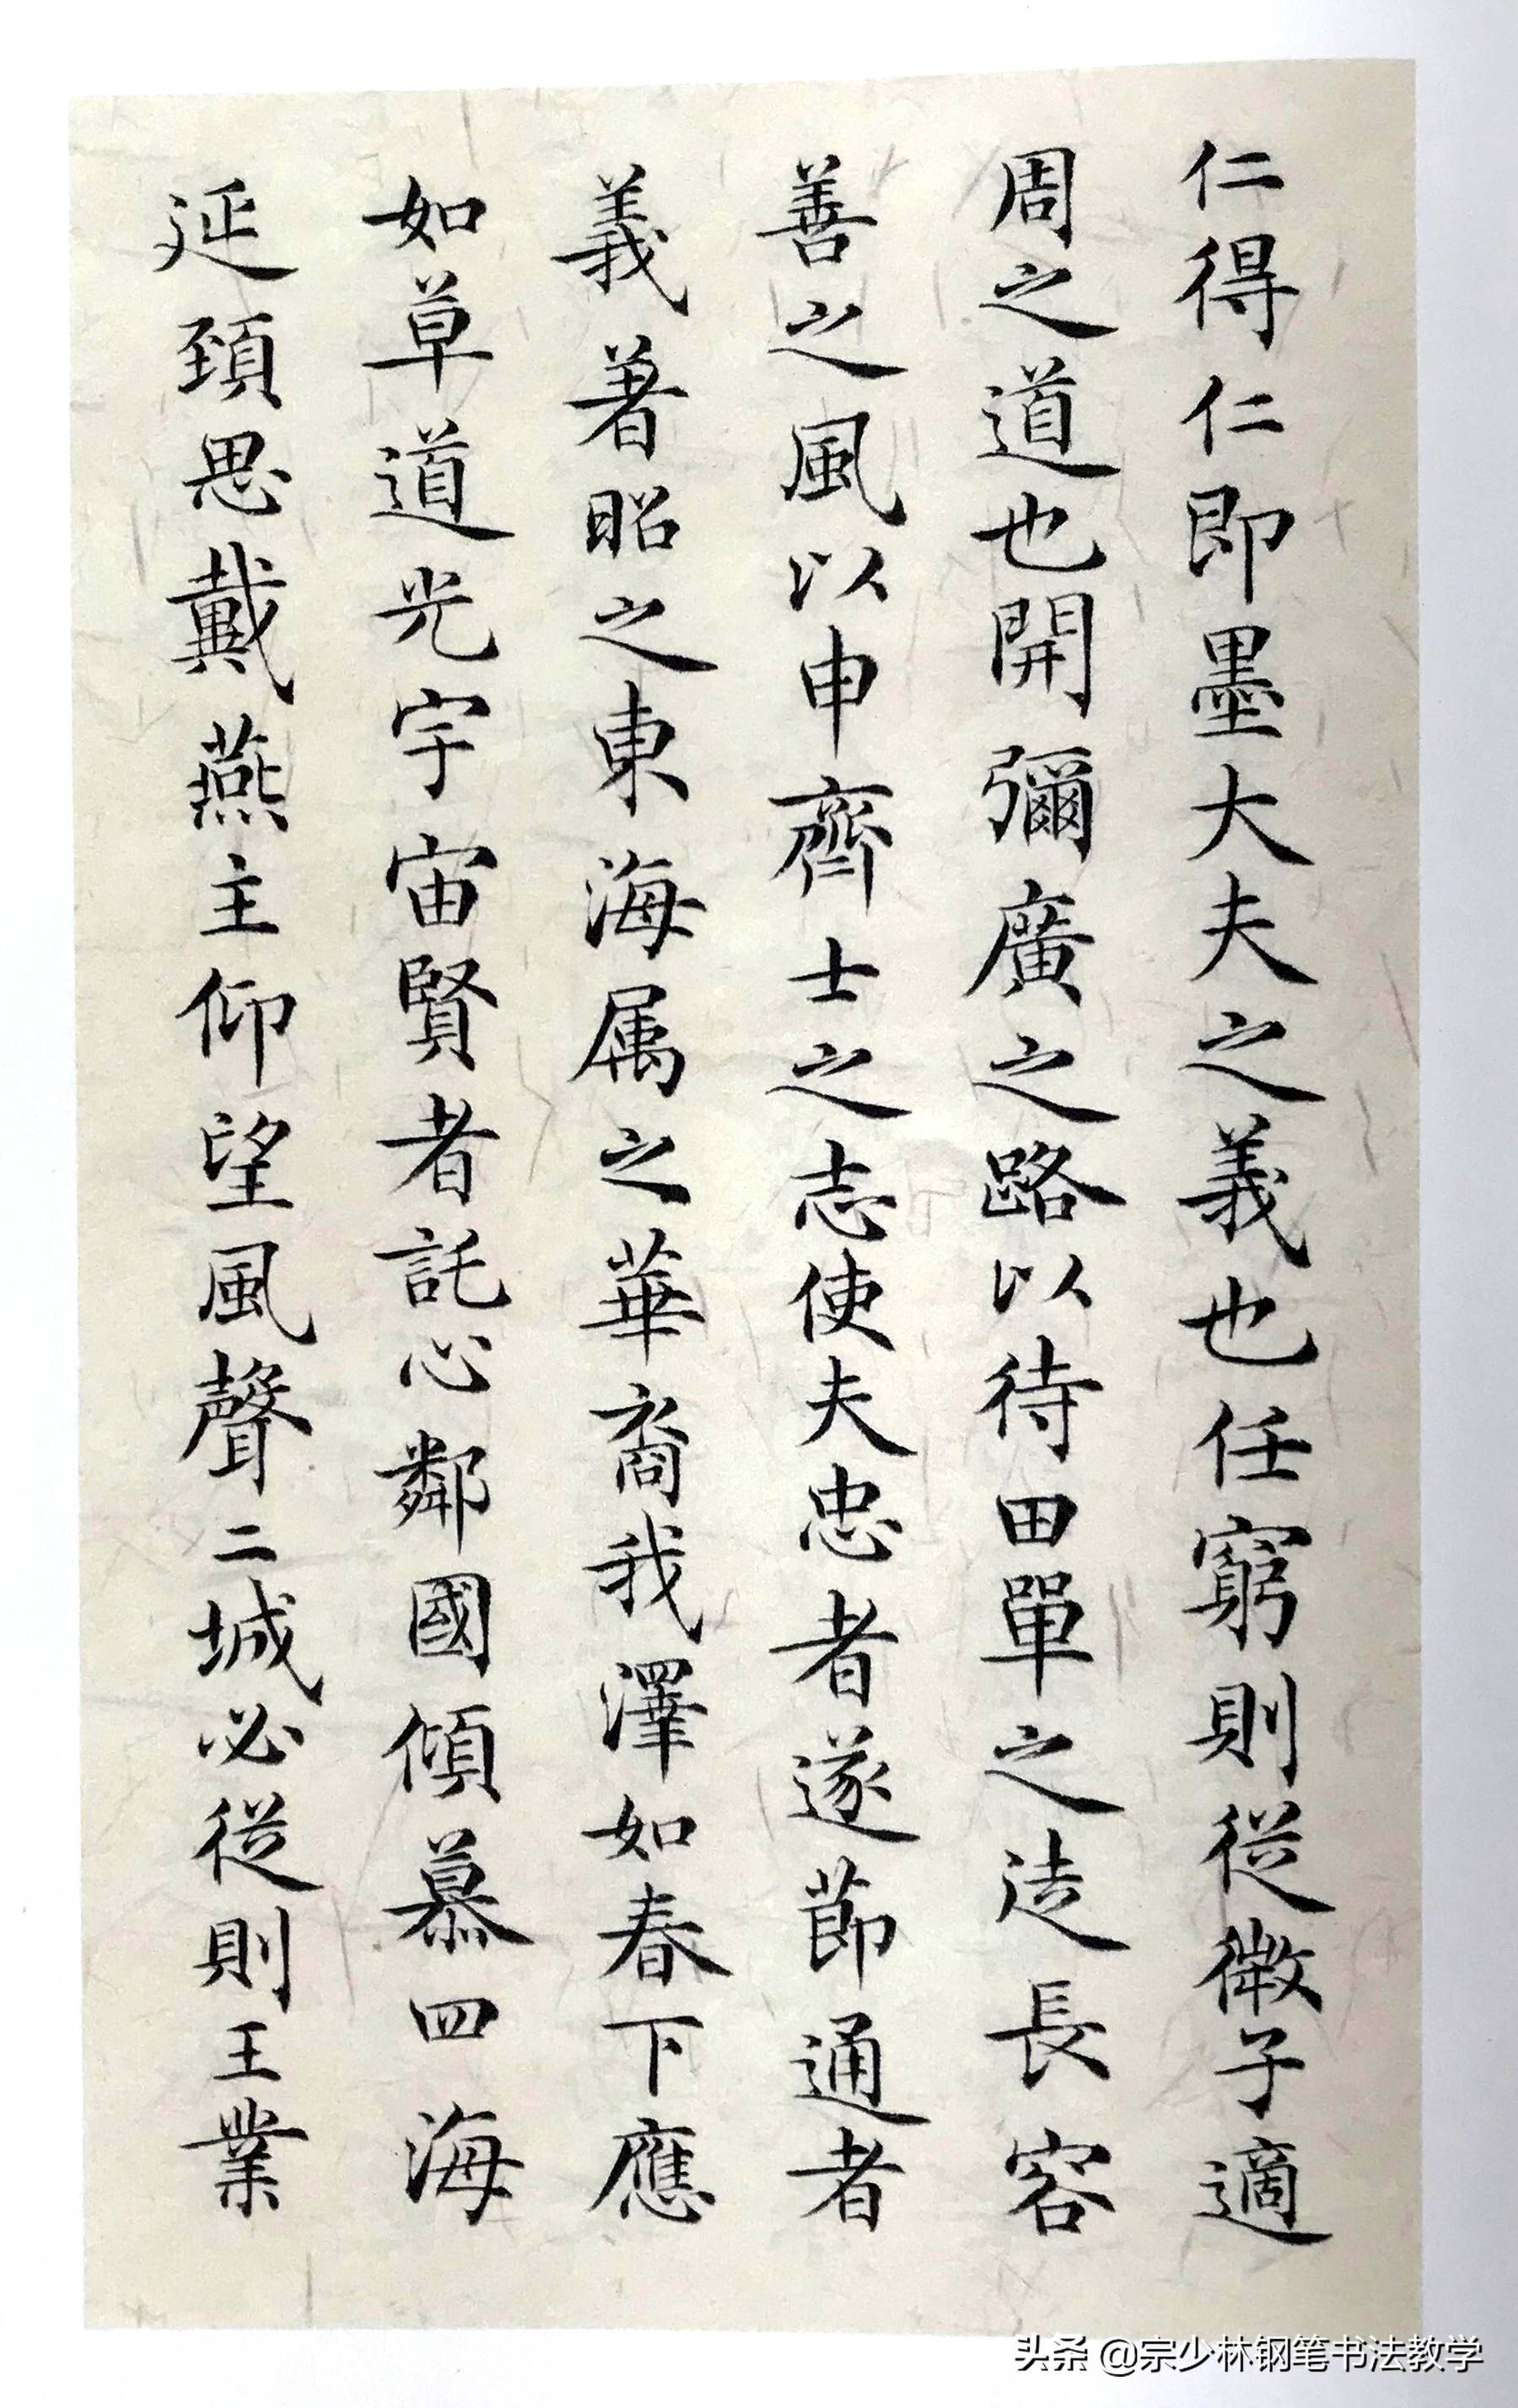 仁得仁即墨大夫之義也任窮則從微子適
周之道也開彌廣之路以待田單之徒長容
善之風以申齊士之志使夫忠者遂節通者
義著昭之東海属之華裔我澤如春下應
如草道光宇宙賢者託心鄰國傾慕四海
延頚思戴燕主仰望風聲二城必從則王業
头条 @宗少林钢笔书法教学